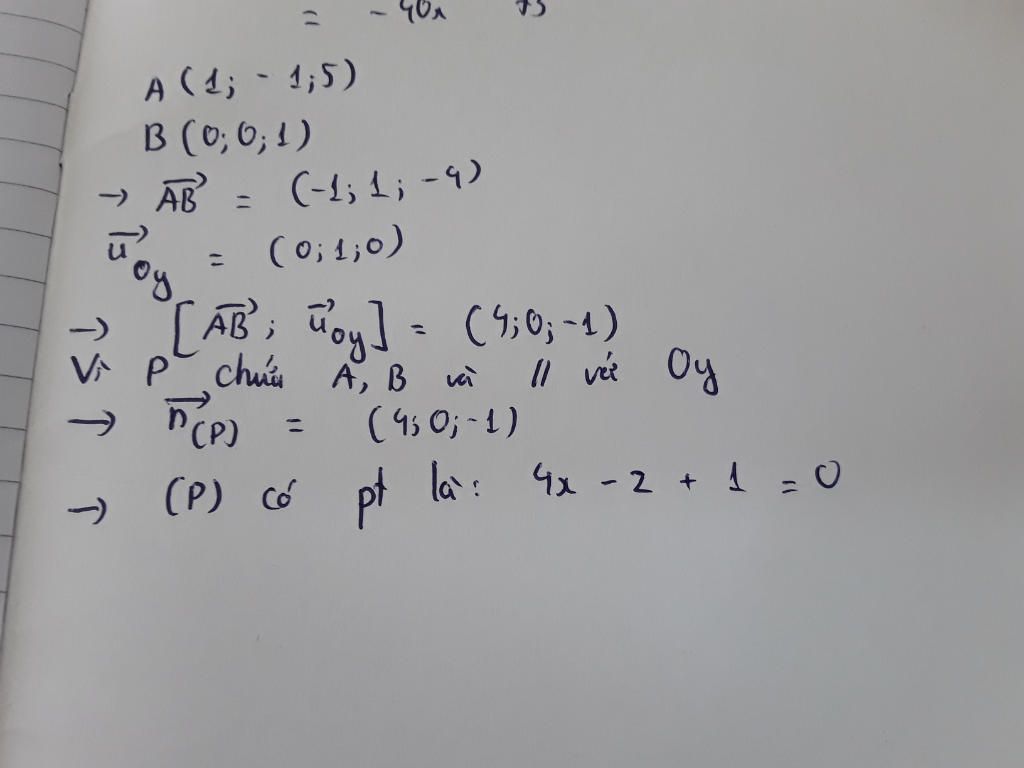 = - 40x 75
A (1; - 1; 5)
B (0; 0; 1)
→ \overrightarrow{AB} = (-1; 1; -4)
\overrightarrow{u}_{Oy} = (0; 1; 0)
→ [\overrightarrow{AB}; \overrightarrow{u}_{Oy}] = (4; 0; -1)
Vì P chứa A, B và // với Oy
→ \overrightarrow{n}_{(P)} = (4; 0; -1)
→ (P) có pt là: 4x - z + 1 = 0